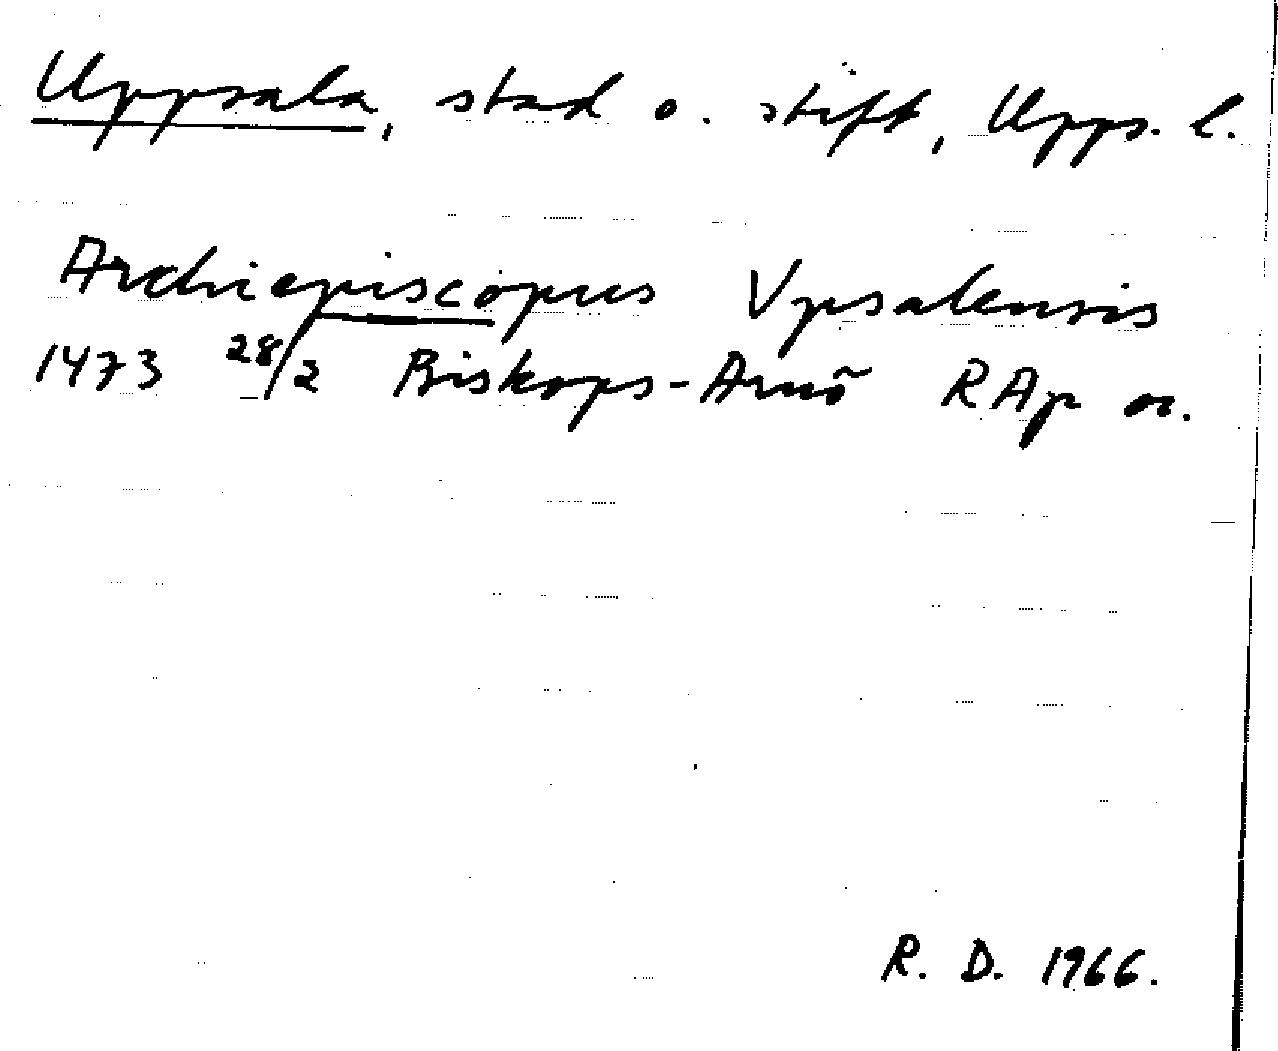 Uppsala, stad o. stift, Upps. l.
Archiepiscopus Vpsalensis
1473 28/2 Biskops-Arnö RAp or.
R. D. 1966.